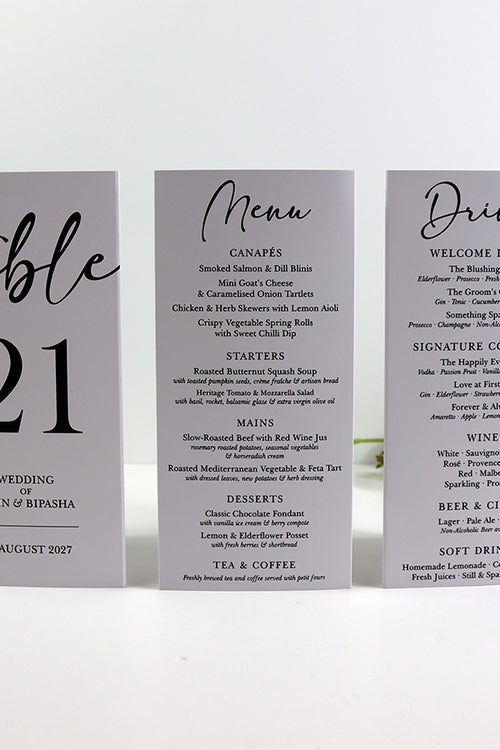 21
WEDDING
OF
& BIPASHA
AUGUST 2027
Menu
CANAPÉS
Smoked Salmon & Dill Blinis
Mini Goat's Cheese
& Caramelised Onion Tartlets
Chicken & Herb Skewers with Lemon Aioli
Crispy Vegetable Spring Rolls
with Sweet Chilli Dip
STARTERS
Roasted Butternut Squash Soup
with toasted pumpkin seeds, crème fraîche & artisan bread
Heritage Tomato & Mozzarella Salad
with basil, rocket, balsamic glaze & extra virgin olive oil
MAINS
Slow-Roasted Beef with Red Wine Jus
rosemary roasted potatoes, seasonal vegetables
& horseradish cream
Roasted Mediterranean Vegetable & Feta Tart
with dressed leaves, new potatoes & herb dressing
DESSERTS
Classic Chocolate Fondant
with vanilla ice cream & berry compote
Lemon & Elderflower Posset
with fresh berries & shortbread
TEA & COFFEE
Freshly brewed tea and coffee served with petit fours
WELCOME
The Blushing
Elderflower · Prosecco · Fresh
The Groom's
Gin · Tonic · Cucumber
Something
Prosecco · Champagne ·
SIGNATURE
The Happily
Vodka · Passion Fruit · Vanilla
Love at First
Gin · Elderflower ·
Forever &
Amaretto · Apple ·
WINE
White ·
Rosé ·
Red ·
Sparkling ·
BEER &
Lager · Pale Ale ·
Non-Alcoholic Beer
SOFT
Homemade Lemonade ·
Fresh Juices · Still &